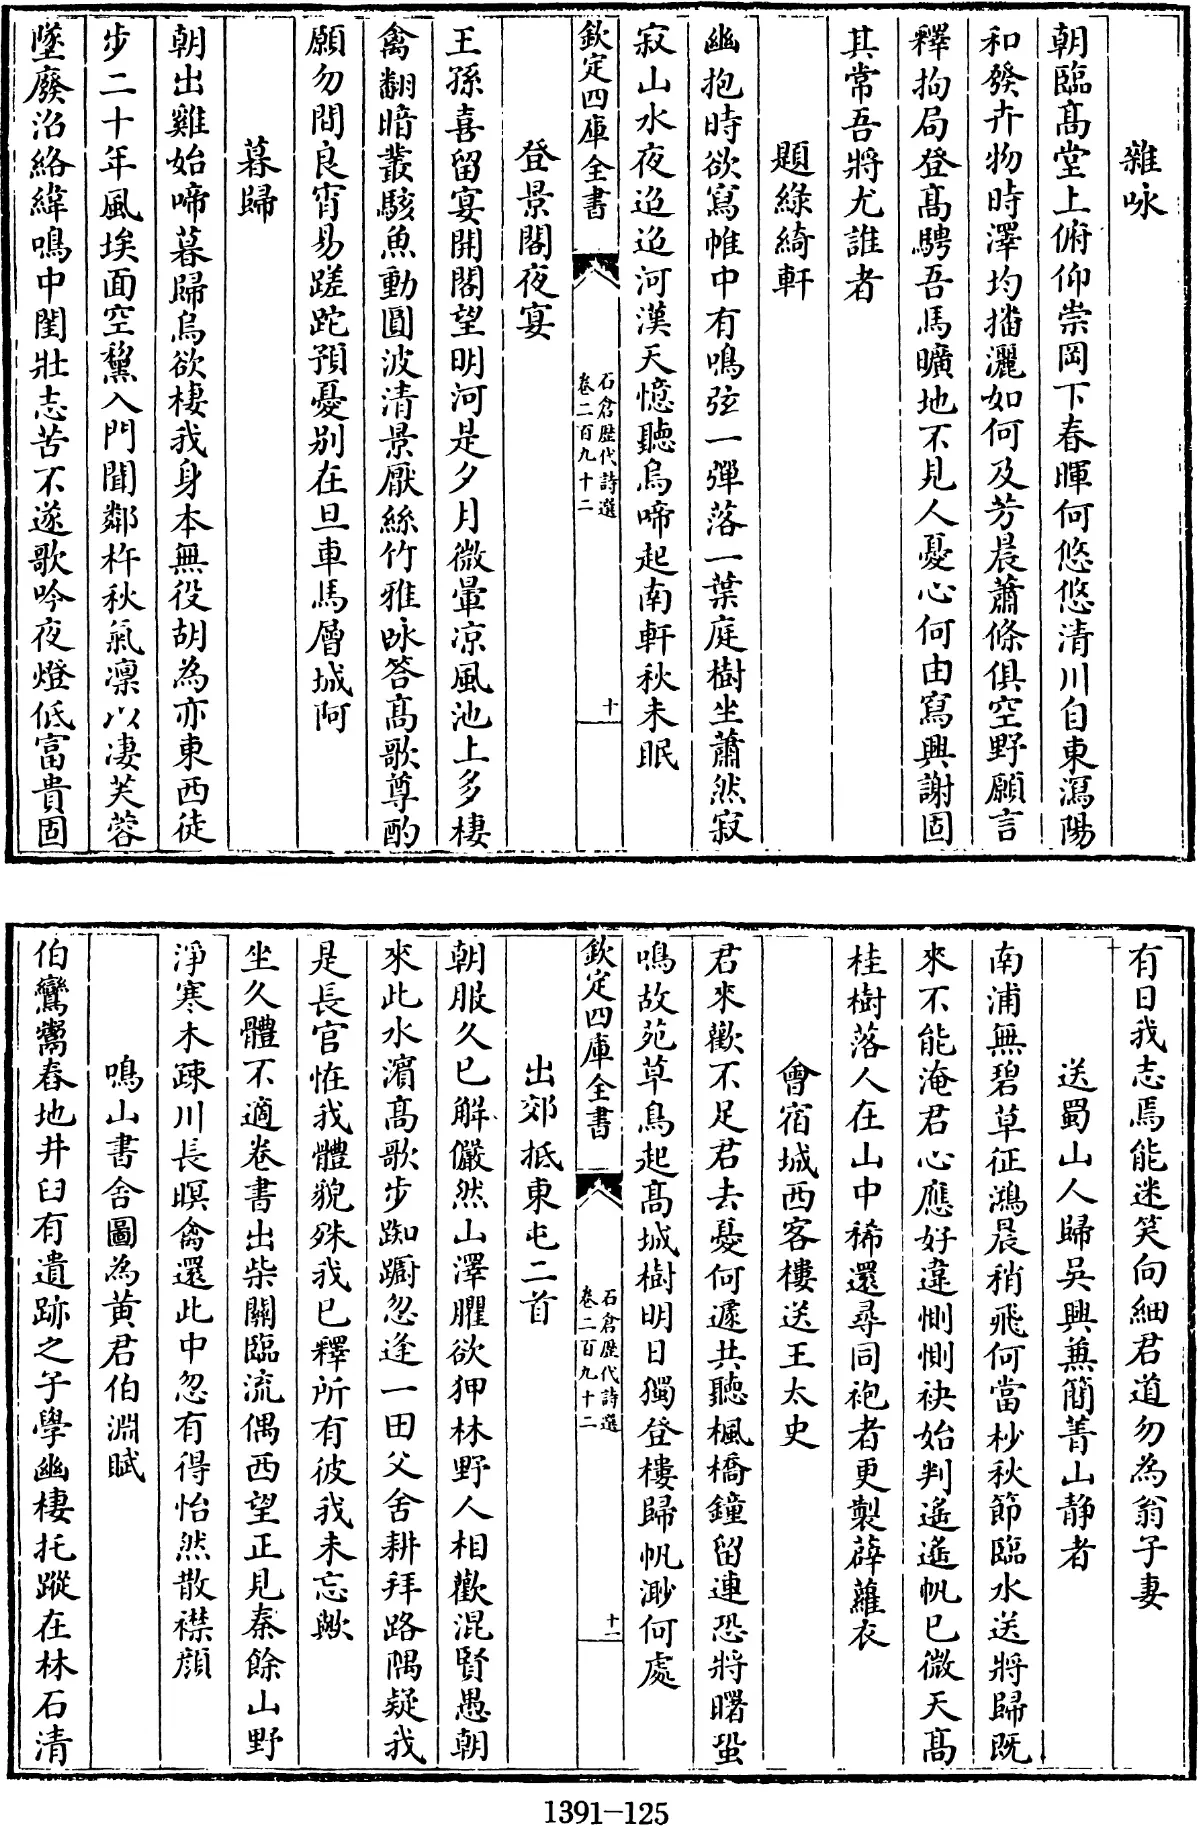 雜咏
朝臨髙堂上俯仰崇岡下春暉何悠悠清川自東瀉陽
和發卉物時澤均播灑如何及芳晨蕭條俱空野願言
釋拘局登髙騁吾馬曠地不見人憂心何由寫興謝固
其常吾將尤誰者
題綠綺軒
幽抱時欲寫帷中有鳴弦一彈落一葉庭樹坐蕭然寂
寂山水夜迢迢河漢天憶聽烏啼起南軒秋未眠
欽定四庫全書
石倉歴代詩選
卷二百九十二
十
登景閣夜宴
王孫喜留宴開閣望明河是夕月微暈凉風池上多棲
禽翻暗叢駭魚動圓波清景厭絲竹雅咏答髙歌尊酌
願勿間良宵易蹉跎預憂别在旦車馬層城阿
暮歸
朝出雞始啼暮歸烏欲棲我身本無役胡為亦東西徒
步二十年風埃面空黧入門聞鄰杵秋氣凛以凄芙蓉
墜廢沼絡緯鳴中閨壯志苦不遂歌吟夜燈低富貴固
有日我志焉能迷笑向細君道勿為翁子妻
送蜀山人歸吳興兼簡菁山静者
南浦無碧草征鴻晨稍飛何當杪秋節臨水送將歸既
來不能淹君心應好違惻惻袂始判遥遥帆已微天髙
桂樹落人在山中稀還尋同袍者更製薜蘿衣
會宿城西客樓送王太史
君來歡不足君去憂何遽共聽楓橋鐘留連恐將曙蛩
鳴故苑草鳥起髙城樹明日獨登樓歸帆渺何處
欽定四庫全書
石倉歴代詩選
卷二百九十二
十一
出郊抵東屯二首
朝服久已解儼然山澤臞欲狎林野人相歡混賢愚朝
來此水濵髙歌步踟蹰忽逢一田父舍耕拜路隅疑我
是長官恠我體貌殊我已釋所有彼我未忘歟
坐久體不適卷書出柴關臨流偶西望正見秦餘山野
淨寒木疎川長暝禽還此中忽有得怡然散襟顔
鳴山書舍圖為黄君伯淵賦
伯鸞嘗舂地井臼有遺跡之子學幽棲托蹤在林石清
1391—125